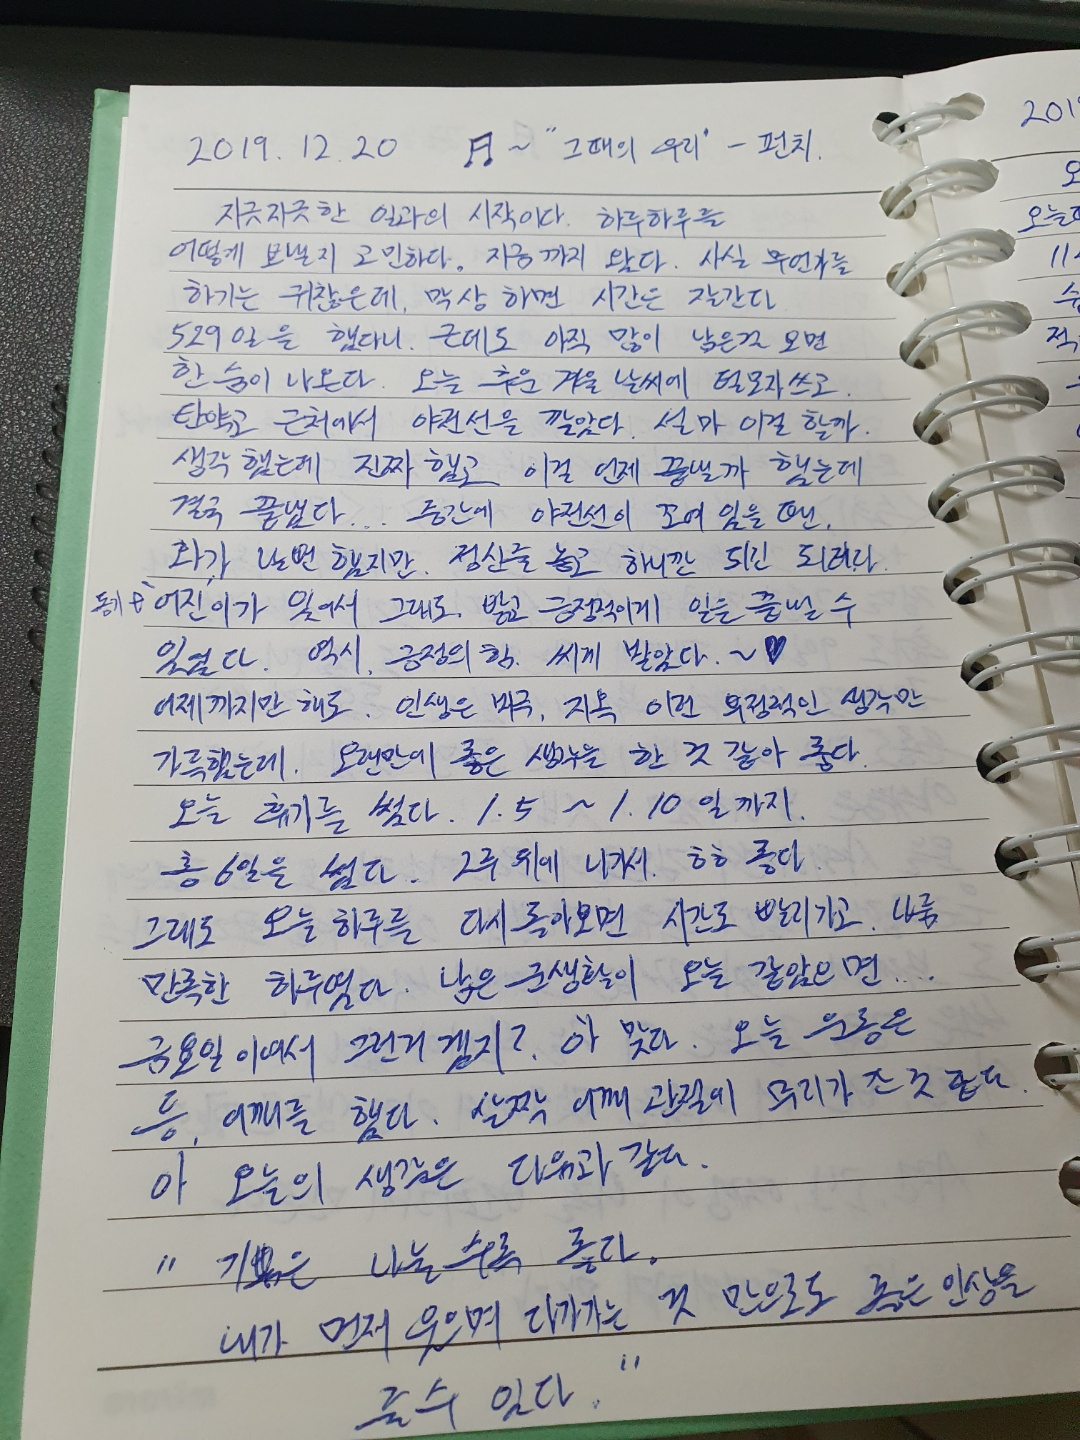 2019. 12. 20 ♬ ~ "그때의 우리" - 펀치.
지긋지긋한 일과의 시작이다. 하루하루를
어떻게 보낼지 고민하다. 지금까지 왔다. 사실 무언가를
하기는 귀찮은데, 막상 하면 시간은 잘간다
529일을 했다니. 근데도 아직 많이 남은걸 보면
한숨이 나온다. 오늘 추운 겨울 날씨에 털모자쓰고.
탄약고 근처에서 야전선을 깔았다. 설마 이걸 할까.
생각 했는데 진짜 했고 이걸 언제 끝낼까 했는데
결국 끝냈다... 중간에 야전선이 꼬여 있을 땐,
화가 날뻔 했지만. 정신줄 놓고 하니깐 되긴 되더라.
동기 "어진"이가 있어서 그래도. 밝고 긍정적이게 일을 끝낼 수
있었다. 역시, 긍정의 힘. 씨게 받았다. ~ ♥
어제까지만 해도. 인생은 비극, 지옥 이런 부정적인 생각만
가득했는데. 오랜만에 좋은 생각을 한 것 같아 좋다.
오늘 휴가를 썼다. 1.5 ~ 1.10 일까지.
총 6일을 썼다. 2주 뒤에 나가서. ㅎㅎ 좋다.
그래도 오늘 하루를 다시 돌아보면 시간도 빨리가고. 나름
만족한 하루였다. 남은 군생활이 오늘 같았으면...
금요일 이여서 그런거 겠지?. 아 맞다. 오늘 운동은
등, 어깨를 했다. 살짝 어깨 관절에 무리가 간 것 같다.
아 오늘의 생각은 다음과 같다.
" 기쁨은 나눌 수록 좋다.
내가 먼저 웃으며 다가가는 것 만으로도 좋은 인상을
줄 수 있다. "
2019
오
오늘
11
적